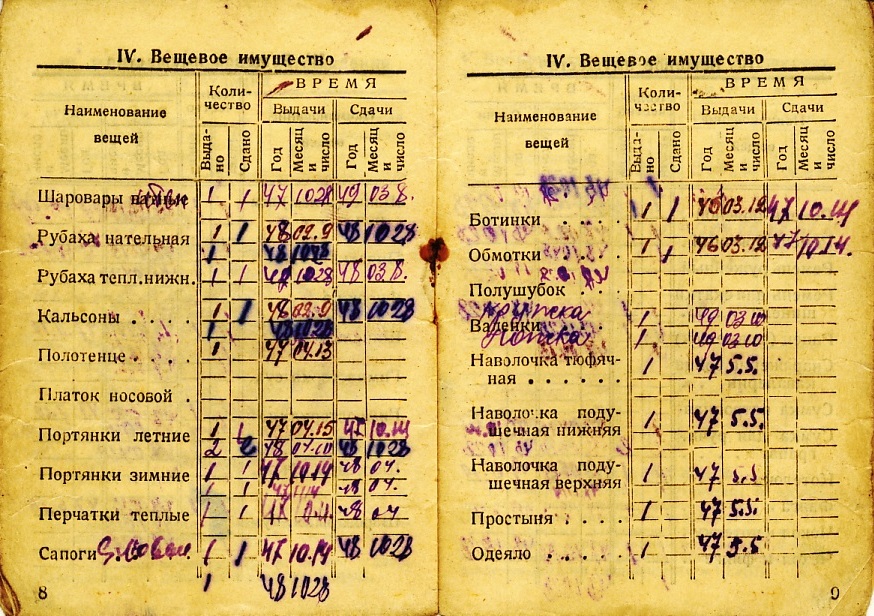 IV. Вещевое имущество
Наименование вещей
Коли-
чество
ВРЕМЯ
Выдачи
Сдачи
Выда-
но
Сдано
Год
Месяц и число
Год
Месяц и число
Шаровары 1 1 47 1028 49 03 8.
Рубаха нательная 1 1 48 02.9 48 1028
1 48 1028
Рубаха тепл.нижн. 1 1 48 1028 48 03 8.
Кальсоны . . . . 1 1 48 02.9 48 1028
1 48 1028
Полотенце . . . 1 47 04.13
Платок носовой .
Портянки летние 1 1 47 04.15 47 10.14
2 2 48 48 1028
Портянки зимние 1 1 47 10.14 48 04.
1 1 47 48 04.
Перчатки теплые 1 1 48 04
Сапоги 1 1 47 10.14 48 1028
1 48 1028
8
IV. Вещевое имущество
Наименование вещей
Коли-
чество
ВРЕМЯ
Выдачи
Сдачи
Выда-
но
Сдано
Год
Месяц и число
Год
Месяц и число
Ботинки . . . . 1 1 46 03.12 47 10.14
Обмотки . . . . 1 1 46 03.12 47 10.14.
Полушубок . .
Валенки 1 49 03 10
1 49 03 10
Наволочка тюфяч-
ная . . . . . . 1 47 5.5.
Наволочка поду-
шечная нижняя 1 47 5.5.
Наволочка поду-
шечная верхняя 1 47 5.5
Простыня . . . . 1 47 5.5.
Одеяло . . . . 1 47 5.5
9